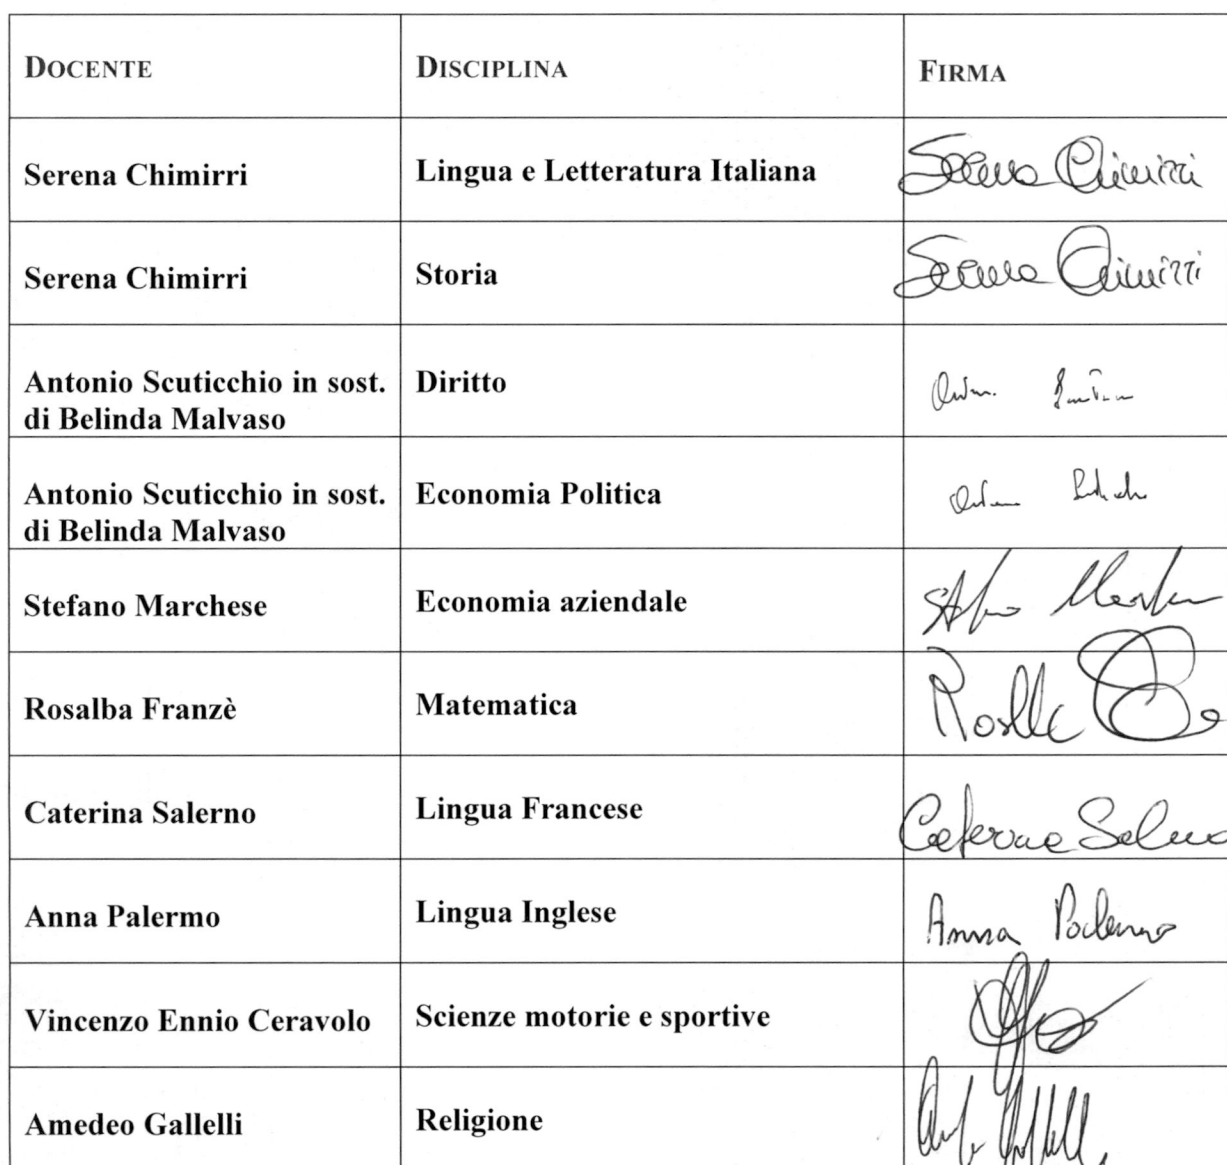 DOCENTE DISCIPLINA FIRMA
Serena Chimirri Lingua e Letteratura Italiana Serena Chimirri
Serena Chimirri Storia Serena Chimirri
Antonio Scuticchio in sost. Diritto
di Belinda Malvaso
Antonio Scuticchio in sost. Economia Politica
di Belinda Malvaso
Stefano Marchese Economia aziendale
Rosalba Franzè Matematica
Caterina Salerno Lingua Francese Caterina Salerno
Anna Palermo Lingua Inglese Anna Palermo
Vincenzo Ennio Ceravolo Scienze motorie e sportive
Amedeo Gallelli Religione